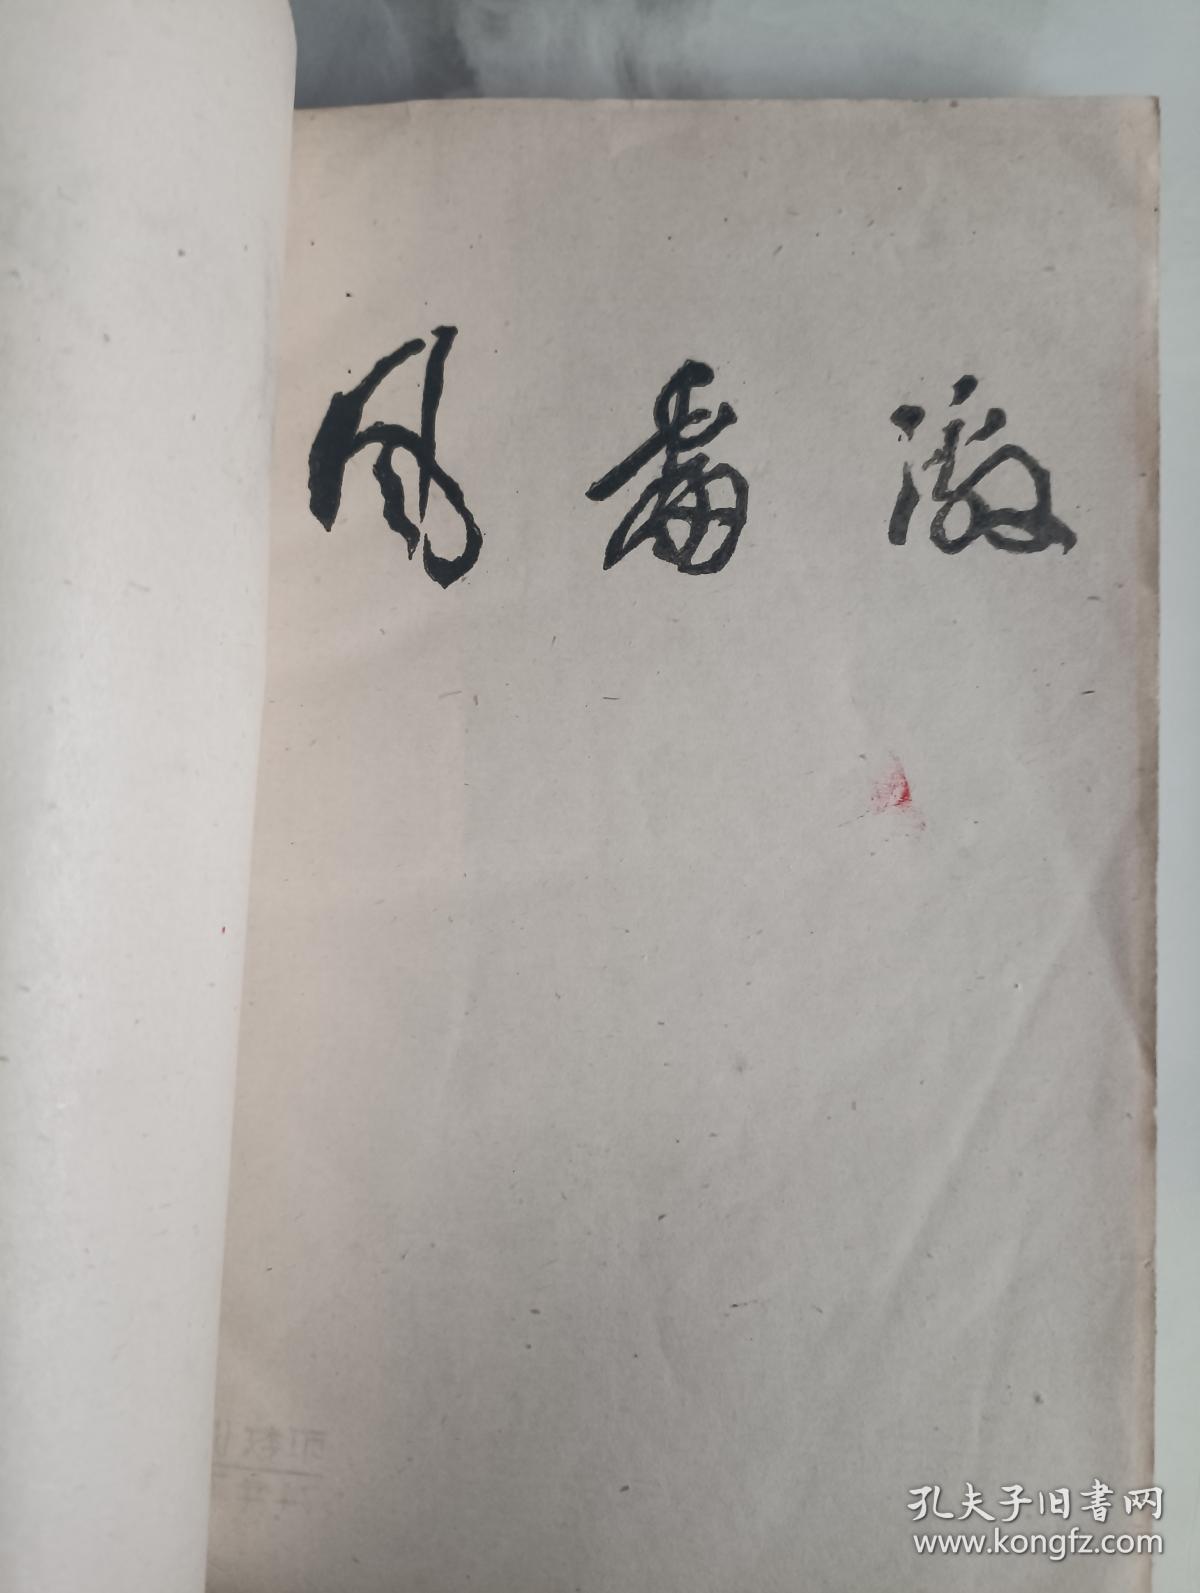 风雷激
孔夫子旧书网
www.kongfz.com